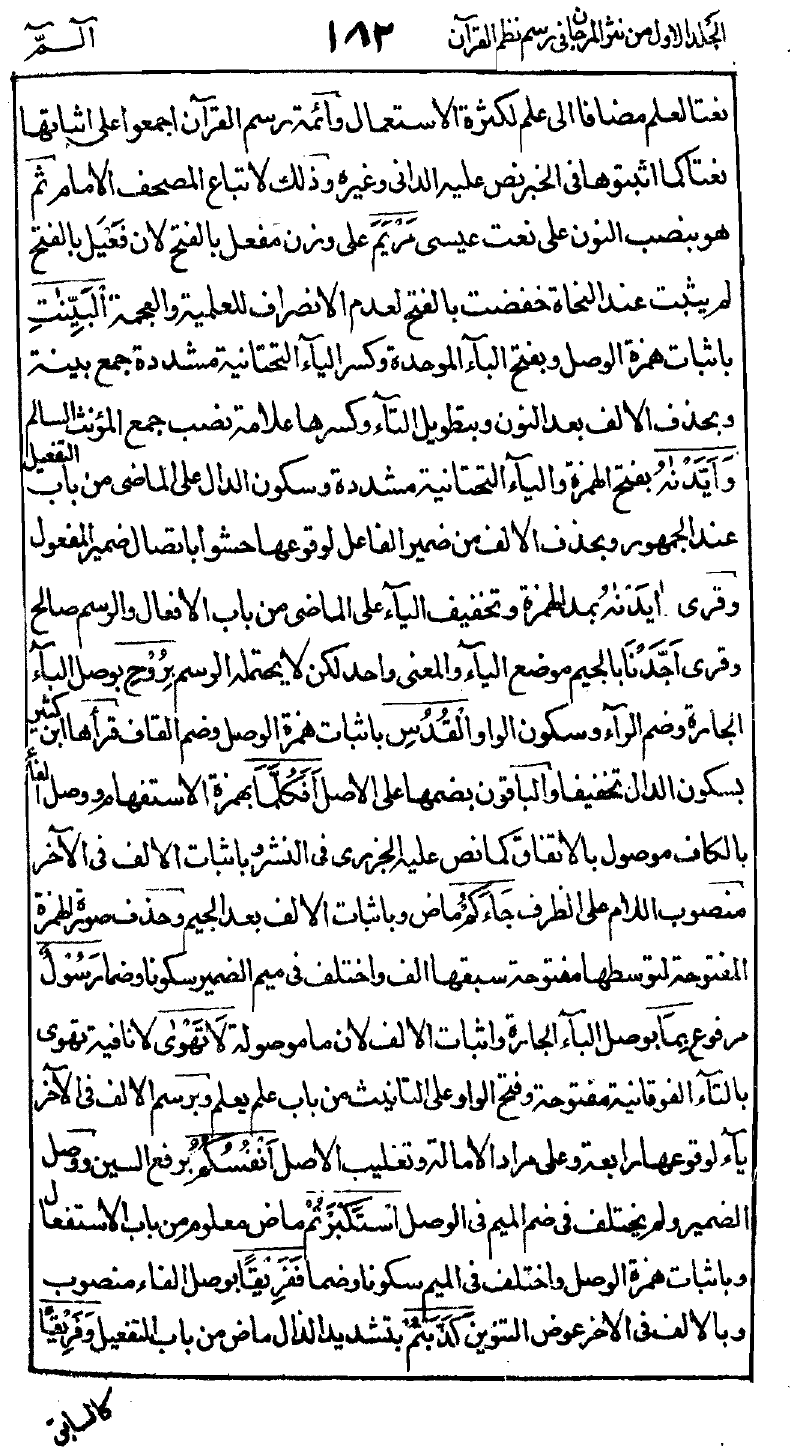 المجلد الاول من نثر المرجان فى رسم نظم القرآن ١٨٢ الٓـمّٓ
نعتا لعلم مضافا الى علم لكثرة الاستعمال وأئمة رسم القرآن اجمعوا على اثباتها
نعتا كما اثبتوها فى الخبر نص عليه الدانى وغيره وذلك لاتباع المصحف الامام ثم
هو بنصب النون على نعت عيسى مَرْيَمَ على وزن مفعل بالفتح لان فَعْيَل بالفتح
لم يثبت عند النحاة خفضت بالفتح لعدم الانصراف للعلمية والعجمة الْبَيِّنٰتِ
باثبات همزة الوصل وبفتح البآء الموحدة وكسر اليآء التحتانية مشددة جمع بينة
وبحذف الالف بعد النون وبتطويل التآء وكسرها علامة نصب جمع المؤنث السالم
وَاَيَّدْنٰهُ بفتح الهمزة واليآء التحتانية مشددة وسكون الدال على الماضى من باب التفعيل
عند الجمهور وبحذف الالف من ضمير الفاعل لوقوعها حشوا باتصال ضمير المفعول
وقرى اٰيَدْنٰهُ بمد الهمزة وتخفيف اليآء على الماضى من باب الافعال والرسم صالح
وقرى اَجَّدْنَا بالجيم موضع اليآء والمعنى واحد لكن لا يحتمله الرسم بِرُوْحِ بوصل البآء
الجارة وضم الرآء وسكون الواو الْقُدُسِ باثبات همزة الوصل وضم القاف قرأها ابن كثير
بسكون الدال تخفيفا والباقون بضمها على الاصل اَفَكُلَّمَا بهمزة الاستفهام ووصل الفاء
بالكاف موصول بالاتفاق كما نص عليه الجزرى فى النشر وباثبات الالف فى الآخر
منصوب اللام على الظرف جَآءَكُمْ ماض وباثبات الالف بعد الجيم وحذف صورة الهمزة
المفتوحة لتوسطها مفتوحة سبقها الف واختلف فى ميم الضمير سكونا وضما رَسُوْلٌ
مرفوع بِمَا بوصل البآء الجارة واثبات الالف لان ما موصولة لَا تَهْوٰى لا نافية تهوى
بالتآء الفوقانية مفتوحة وفتح الواو على التانيث من باب علم يعلم وبرسم الالف فى الآخر
يآء لوقوعها رابعة وعلى مراد الامالة وتغليب الاصل اَنْفُسُكُمُ برفع السين ووصل
الضمير ولم يختلف فى ضم الميم فى الوصل اسْتَكْبَرْتُمْ ماض معلوم من باب الاستفعال
وباثبات همزة الوصل واختلف فى الميم سكونا وضما فَفَرِيْقًا بوصل الفاء منصوب
وبالالف فى الاخر عوض التنوين كَذَّبْتُمْ بتشديد الذال ماض من باب التفعيل وَفَرِيْقًا
كالسابق